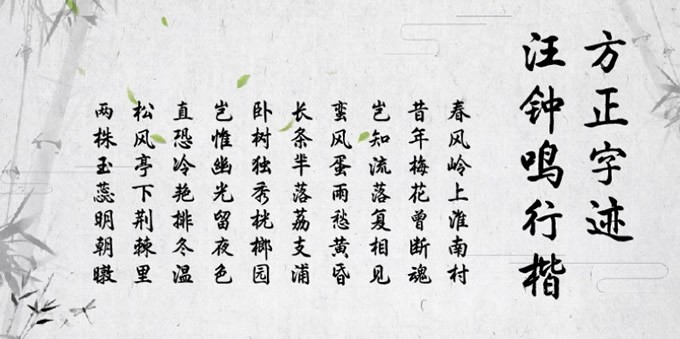 方正字迹
汪钟鸣行楷
春风岭上淮南村
昔年梅花曾断魂
岂知流落复相见
蛮风蛋雨愁黄昏
长条半落荔支浦
卧树独秀桄榔园
岂惟幽光留夜色
直恐冷艳排冬温
松风亭下荆棘里
两株玉蕊明朝暾